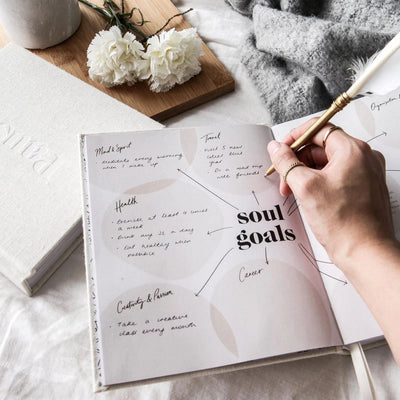 Mind & Spirit
meditate every morning
when I wake up
Travel
visit 3 new
cities this
year
do a road trip
with friends
Health
• Exercise at least 4 times
a week
• Drink 2L a day
• Eat healthy when
possible
soul
goals
Career
Creativity & Passion
• Take a creative
class every month